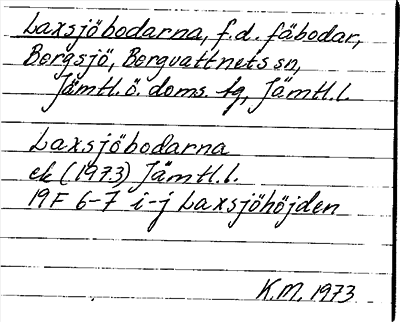 Laxsjöbodarna, f.d. fäbodar,
Bergsjö, Bergvattnets sn,
Jämtl. ö. doms. tg, Jämtl. l.
Laxsjöbodarna
ek (1973) Jämtl. l.
19F 6-7 i-j Laxsjöhöjden
K.M. 1973